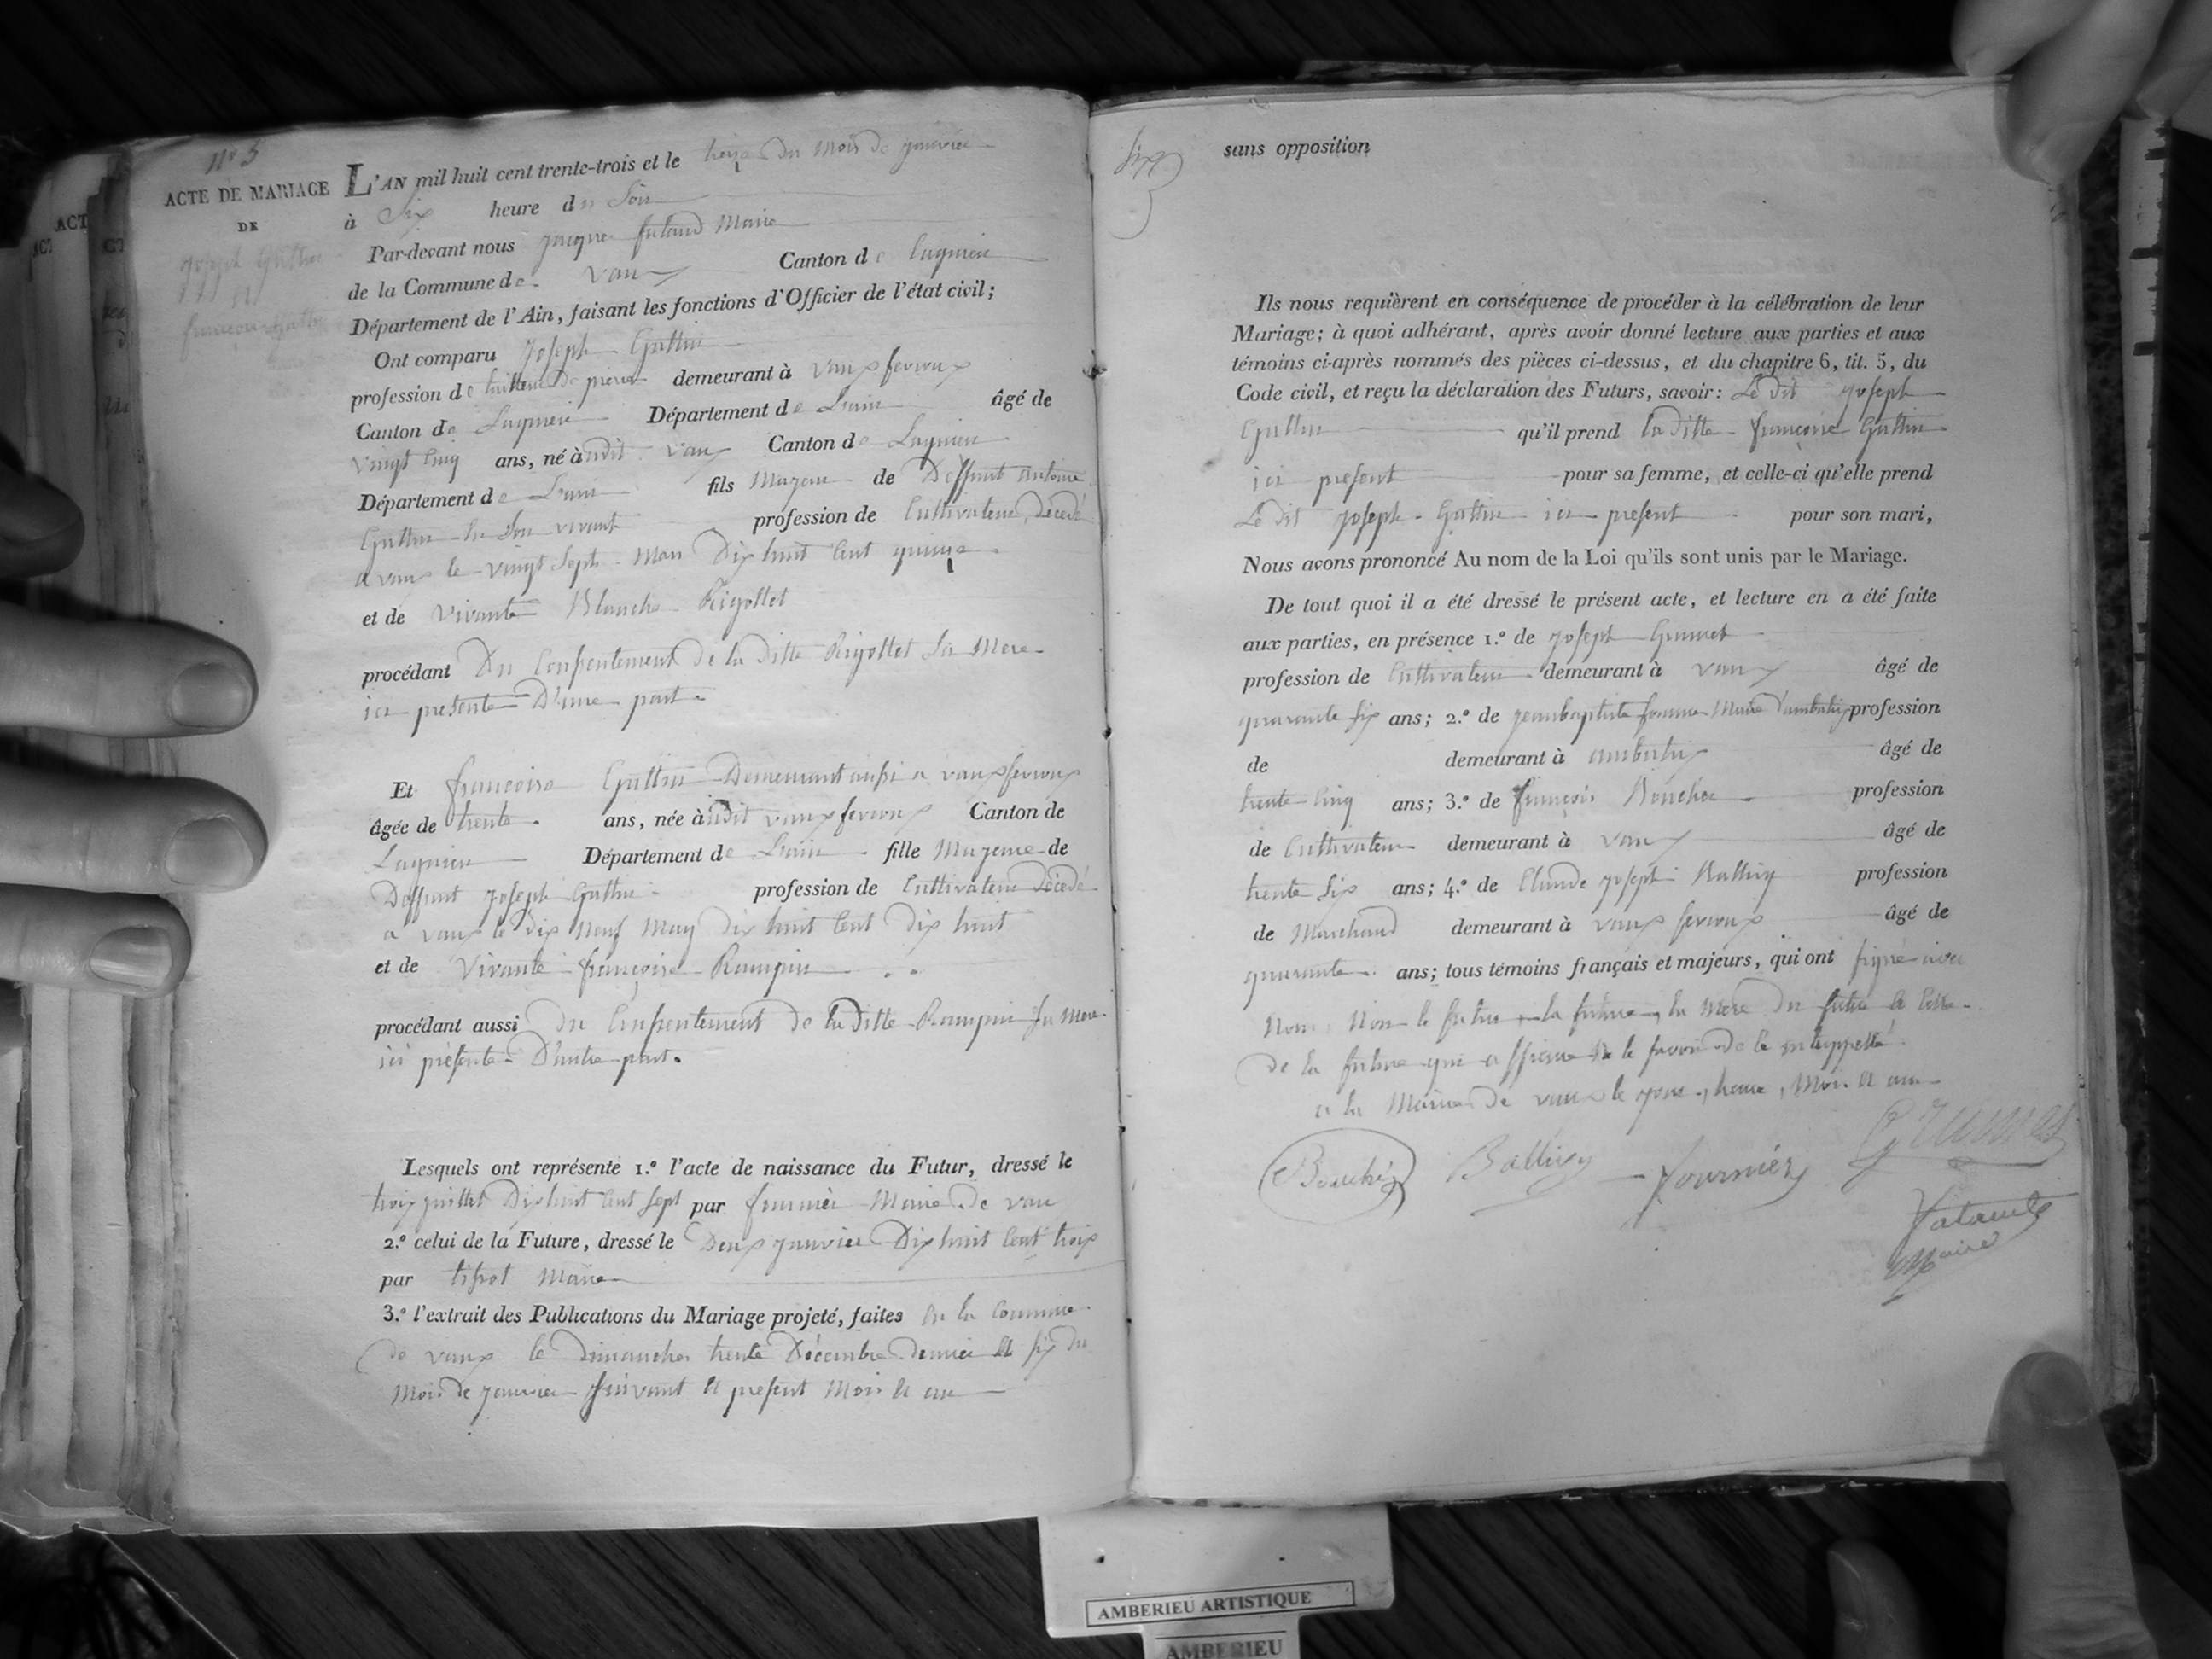 N° 5
ACTE DE MARIAGE
DE
Joseph Guttin
et
françoise Guttin
L'AN mil huit cent trente-trois et le treize du mois de janvier
à Six heure du Soir
Par-devant nous jacque Maire
de la Commune de vaux Canton de Lagnieu
Département de l'Ain, faisant les fonctions d'Officier de l'état civil;
Ont comparu Joseph Guttin
profession de tailleur de pierre demeurant à vaux fevroux
Canton de Lagnieu Département de Lain âgé de
vingt cinq ans, né à udit vaux Canton de Lagnieu
Département de Lain fils Mageur de Deffunt antoine
Guttin en Son vivant profession de Cultivateur, décédé
a vaux le vingt Sept Mars Dix huit Cent quinze
et de vivante Blanche Rigollet
procédant Du Consentement de la ditte Rigollet Sa Mere
ici presente D'une part
Et françoise Guttin Demeurant aussi a vaux fevroux
âgée de trente ans, née à udit vaux fevroux Canton de
Lagnieu Département de Lain fille Mageure de
Deffunt Joseph Guttin profession de Cultivateur décédé
a vaux le dix Neuf May dix huit Cent dix huit
et de Vivante françoise Rampin
procédant aussi du Consentement de la ditte Rampin sa Mere
ici présente D'autre part.
Lesquels ont représenté 1.° l'acte de naissance du Futur, dressé le
trois juillet Dix huit Cent Sept par fournier Maire de vau
2.° celui de la Future, dressé le Deux janvier Dix huit Cent trois
par tissot Maire
3.° l'extrait des Publications du Mariage projeté, faites en la Commune
de vaux le dimanche trente Décembre dernier et six du
Mois de janvier suivant et present Mois et an
Six
sans opposition
Ils nous requièrent en conséquence de procéder à la célébration de leur
Mariage; à quoi adhérant, après avoir donné lecture aux parties et aux
témoins ci-après nommés des pièces ci-dessus, et du chapitre 6, tit. 5, du
Code civil, et reçu la déclaration des Futurs, savoir: Le dit Joseph
Guttin qu'il prend la ditte françoise Guttin
ici present pour sa femme, et celle-ci qu'elle prend
Le dit Joseph Guttin ici present pour son mari,
Nous avons prononcé Au nom de la Loi qu'ils sont unis par le Mariage.
De tout quoi il a été dressé le présent acte, et lecture en a été faite
aux parties, en présence 1.° de Joseph Grumet
profession de Cultivateur demeurant à vaux âgé de
quarante six ans; 2.° de jeanbaptiste fournier Maire d'ambutrix profession
de demeurant à ambutrix âgé de
trente cinq ans; 3.° de françois Bouchu profession
de Cultivateur demeurant à vaux âgé de
trente Six ans; 4.° de Claude Joseph Ballivy profession
de Marchand demeurant à vaux fevroux âgé de
quarante ans; tous témoins français et majeurs, qui ont signé avec
Nous Non le futur la future, la Mere du futur et Celle
de la future qui a le savoir de ce
a la Mairie de vaux le jour, heure, Mois et an
Bouché Ballivy fournier Grumet
Maire
AMBERIEU ARTISTIQUE
AMBERIEU